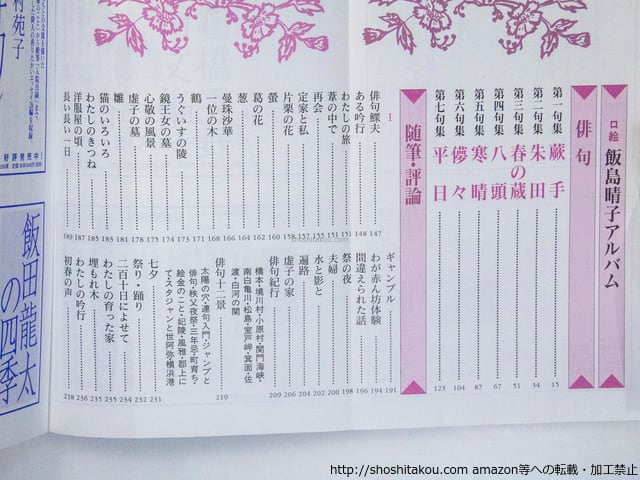 口絵 飯島晴子アルバム
俳句
第一句集 蕨手 15
第二句集 朱田 34
第三句集 春の蔵 51
第四句集 八頭 67
第五句集 寒晴 87
第六句集 儚々 104
第七句集 平日 123
随筆・評論
I
俳句鰥夫 147
ある吟行 148
わたしの旅 151
葦の中で 151
再会 155
定家と私 157
片栗の花 158
螢 160
葛の花 162
葱 164
曼珠沙華 165
一位の木 168
鶴 171
うぐいすの陵 173
心敬の風景 174
鏡王女の墓 175
虚子の墓 178
雛 181
猫のいろいろ 183
わたしのきつね 185
洋服屋の頃 187
長い長い一日 189
ギャンブル 191
わが赤ん坊体験 194
間違えられた話 196
祭の夜 198
夫婦 199
水と影と 200
遍路 202
虚子の家 206
俳句紀行 209
橋本・境川村・小原村・関門海峡・
南白亀川・松島・室戸岬・箕面・佐
渡・白河の関
俳句十二景 219
太陽の穴・連句入門・ジャンプと
俳句・秩父夜祭・三年忌・町育ち・
絵金のこと・妃陵・風雅・郡上に
て・スタジャンと世阿弥・横浜港
七夕 231
祭り・踊り 232
二百十日によせて 234
わたしの育った家 235
埋もれ木 235
わたしの吟行 236
初春の声 238
村苑子
好評発売中!
飯田龍太
の四季
http://shoshitakou.com amazon等への転載・加工禁止
shoshitakou.com